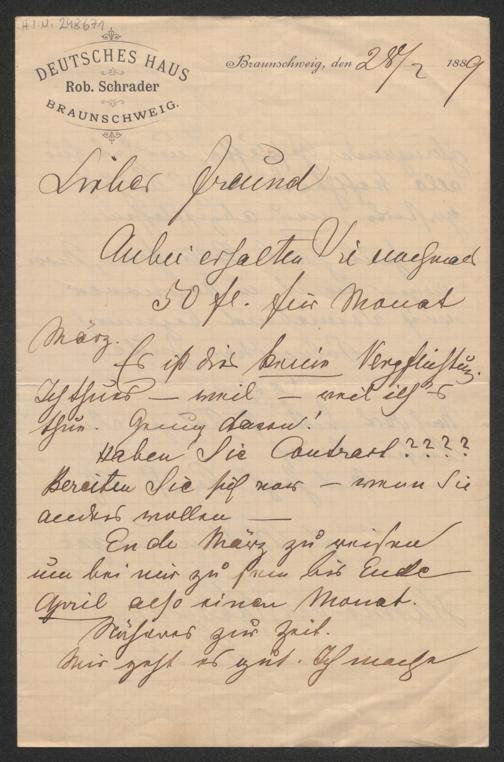 H.I.N. 248671
DEUTSCHES HAUS
Rob. Schrader
BRAUNSCHWEIG.
Braunschweig, den 28/2 1889
Lieber Freund
Anbei erhalten Sie nochmal
50 fl. für Monat
März.
Es ist dies keine Verpflichtung.
Ich thue's — weil — weil ich's
thue. Genug davon!
Haben Sie Contract????
Bereiten Sie sich vor — wenn Sie
anders wollen —
Ende März zu reisen
um bei mir zu sein bis Ende
April also einen Monat.
Näheres zur Zeit.
Mir geht es gut. Ich mache